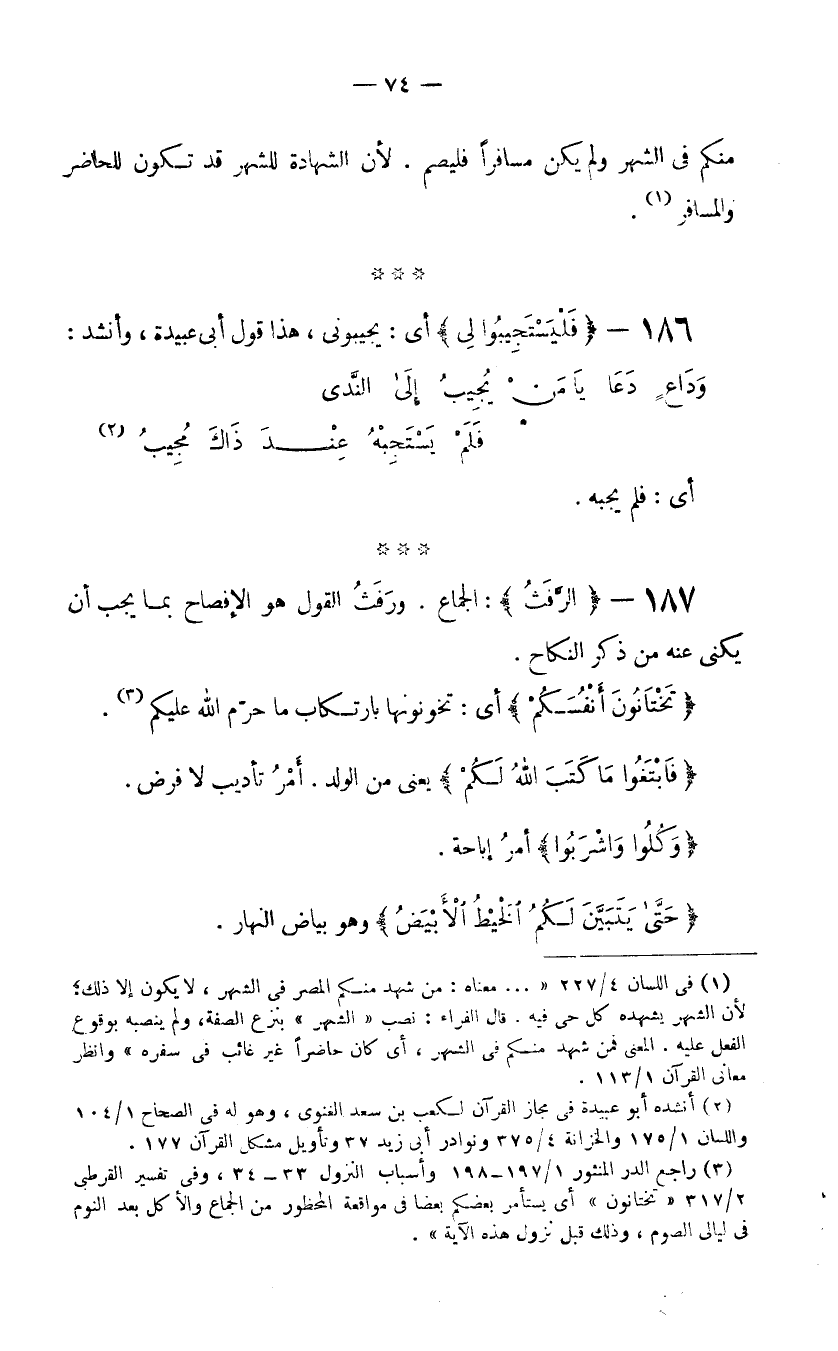 — ٧٤ —
منكم فى الشهر ولم يكن مسافراً فليصم . لأن الشهادة للشهر قد تكون للحاضر
والمسافر (١) .
١٨٦ — ﴿ فَلْيَسْتَجِيبُوا لِى ﴾ أى : يجيبونى ، هذا قول أبى عبيدة ، وأنشد :
وَدَاعٍ دَعَا يَا مَنْ يُجِيبُ إِلَىٰ النَّدَى
فَلَمْ يَسْتَجِبْهُ عِنْدَ ذَاكَ مُجِيبُ (٢)
أى : فلم يجبه .
١٨٧ — ﴿ الرَّفَثُ ﴾ : الجماع . ورَفَثُ القول هو الإفصاح بما يجب أن
يكنى عنه من ذكر النكاح .
﴿ تَخْتَانُونَ أَنْفُسَكُمْ ﴾ أى : تخونونها بارتكاب ما حرّم الله عليكم (٣) .
﴿ فَابْتَغُوا مَا كَتَبَ اللهُ لَكُمْ ﴾ يعنى من الولد . أَمْرُ تأديب لا فرض .
﴿ وَكُلُوا وَاشْرَبُوا ﴾ أمرُ إباحة .
﴿ حَتَّىٰ يَتَبَيَّنَ لَكُمُ ٱلْخَيْطُ ٱلْأَبْيَضُ ﴾ وهو بياض النهار .
(١) فى اللسان ٢٢٧/٤ « ... معناه : من شهد منكم المصر فى الشهر ، لا يكون إلا ذلك؛
لأن الشهر يشهده كل حى فيه . قال الفراء : نصب « الشهر » بنزع الصفة، ولم ينصبه بوقوع
الفعل عليه . المعنى فمن شهد منكم فى الشهر ، أى كان حاضراً غير غائب فى سفره » وانظر
معانى القرآن ١١٣/١ .
(٢) أنشده أبو عبيدة فى مجاز القرآن لكعب بن سعد الغنوى ، وهو له فى الصحاح ١٠٤/١
واللسان ١٧٥/١ والخزانة ٣٧٥/٤ ونوادر أبى زيد ٣٧ وتأويل مشكل القرآن ١٧٧ .
(٣) راجع الدر المنثور ١٩٧/١–١٩٨ وأسباب النزول ٣٣ – ٣٤ ، وفى تفسير القرطبى
٣١٧/٢ « تختانون » أى يستأمر بعضكم بعضا فى مواقعة المحظور من الجماع والأكل بعد النوم
فى ليالى الصوم ، وذلك قبل نزول هذه الآية » .